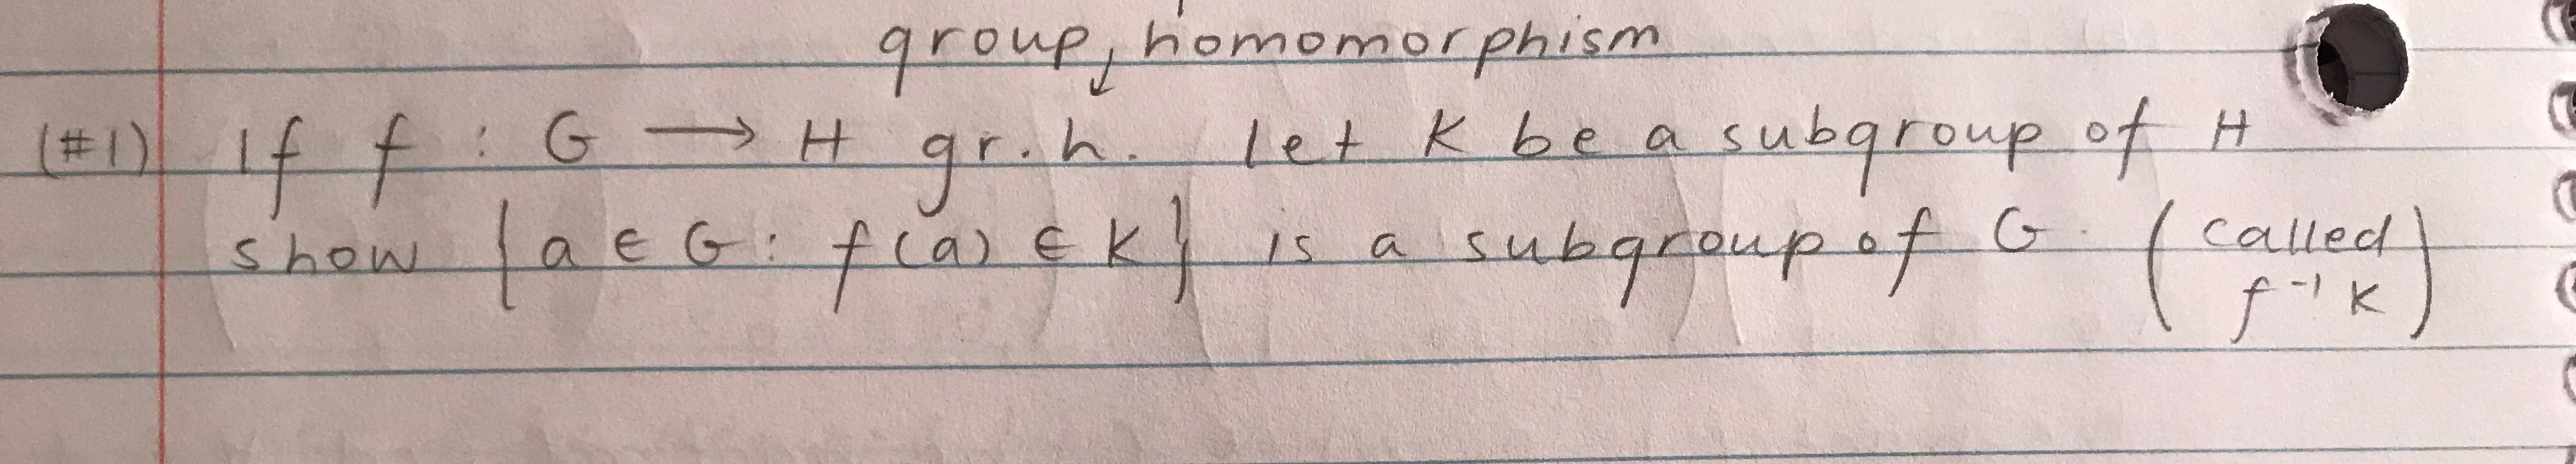 group homomorphism
(#1) If f : G → H gr. h. let K be a subgroup of H
show {a ∈ G : f(a) ∈ K} is a subgroup of G. (called
f⁻¹ K)